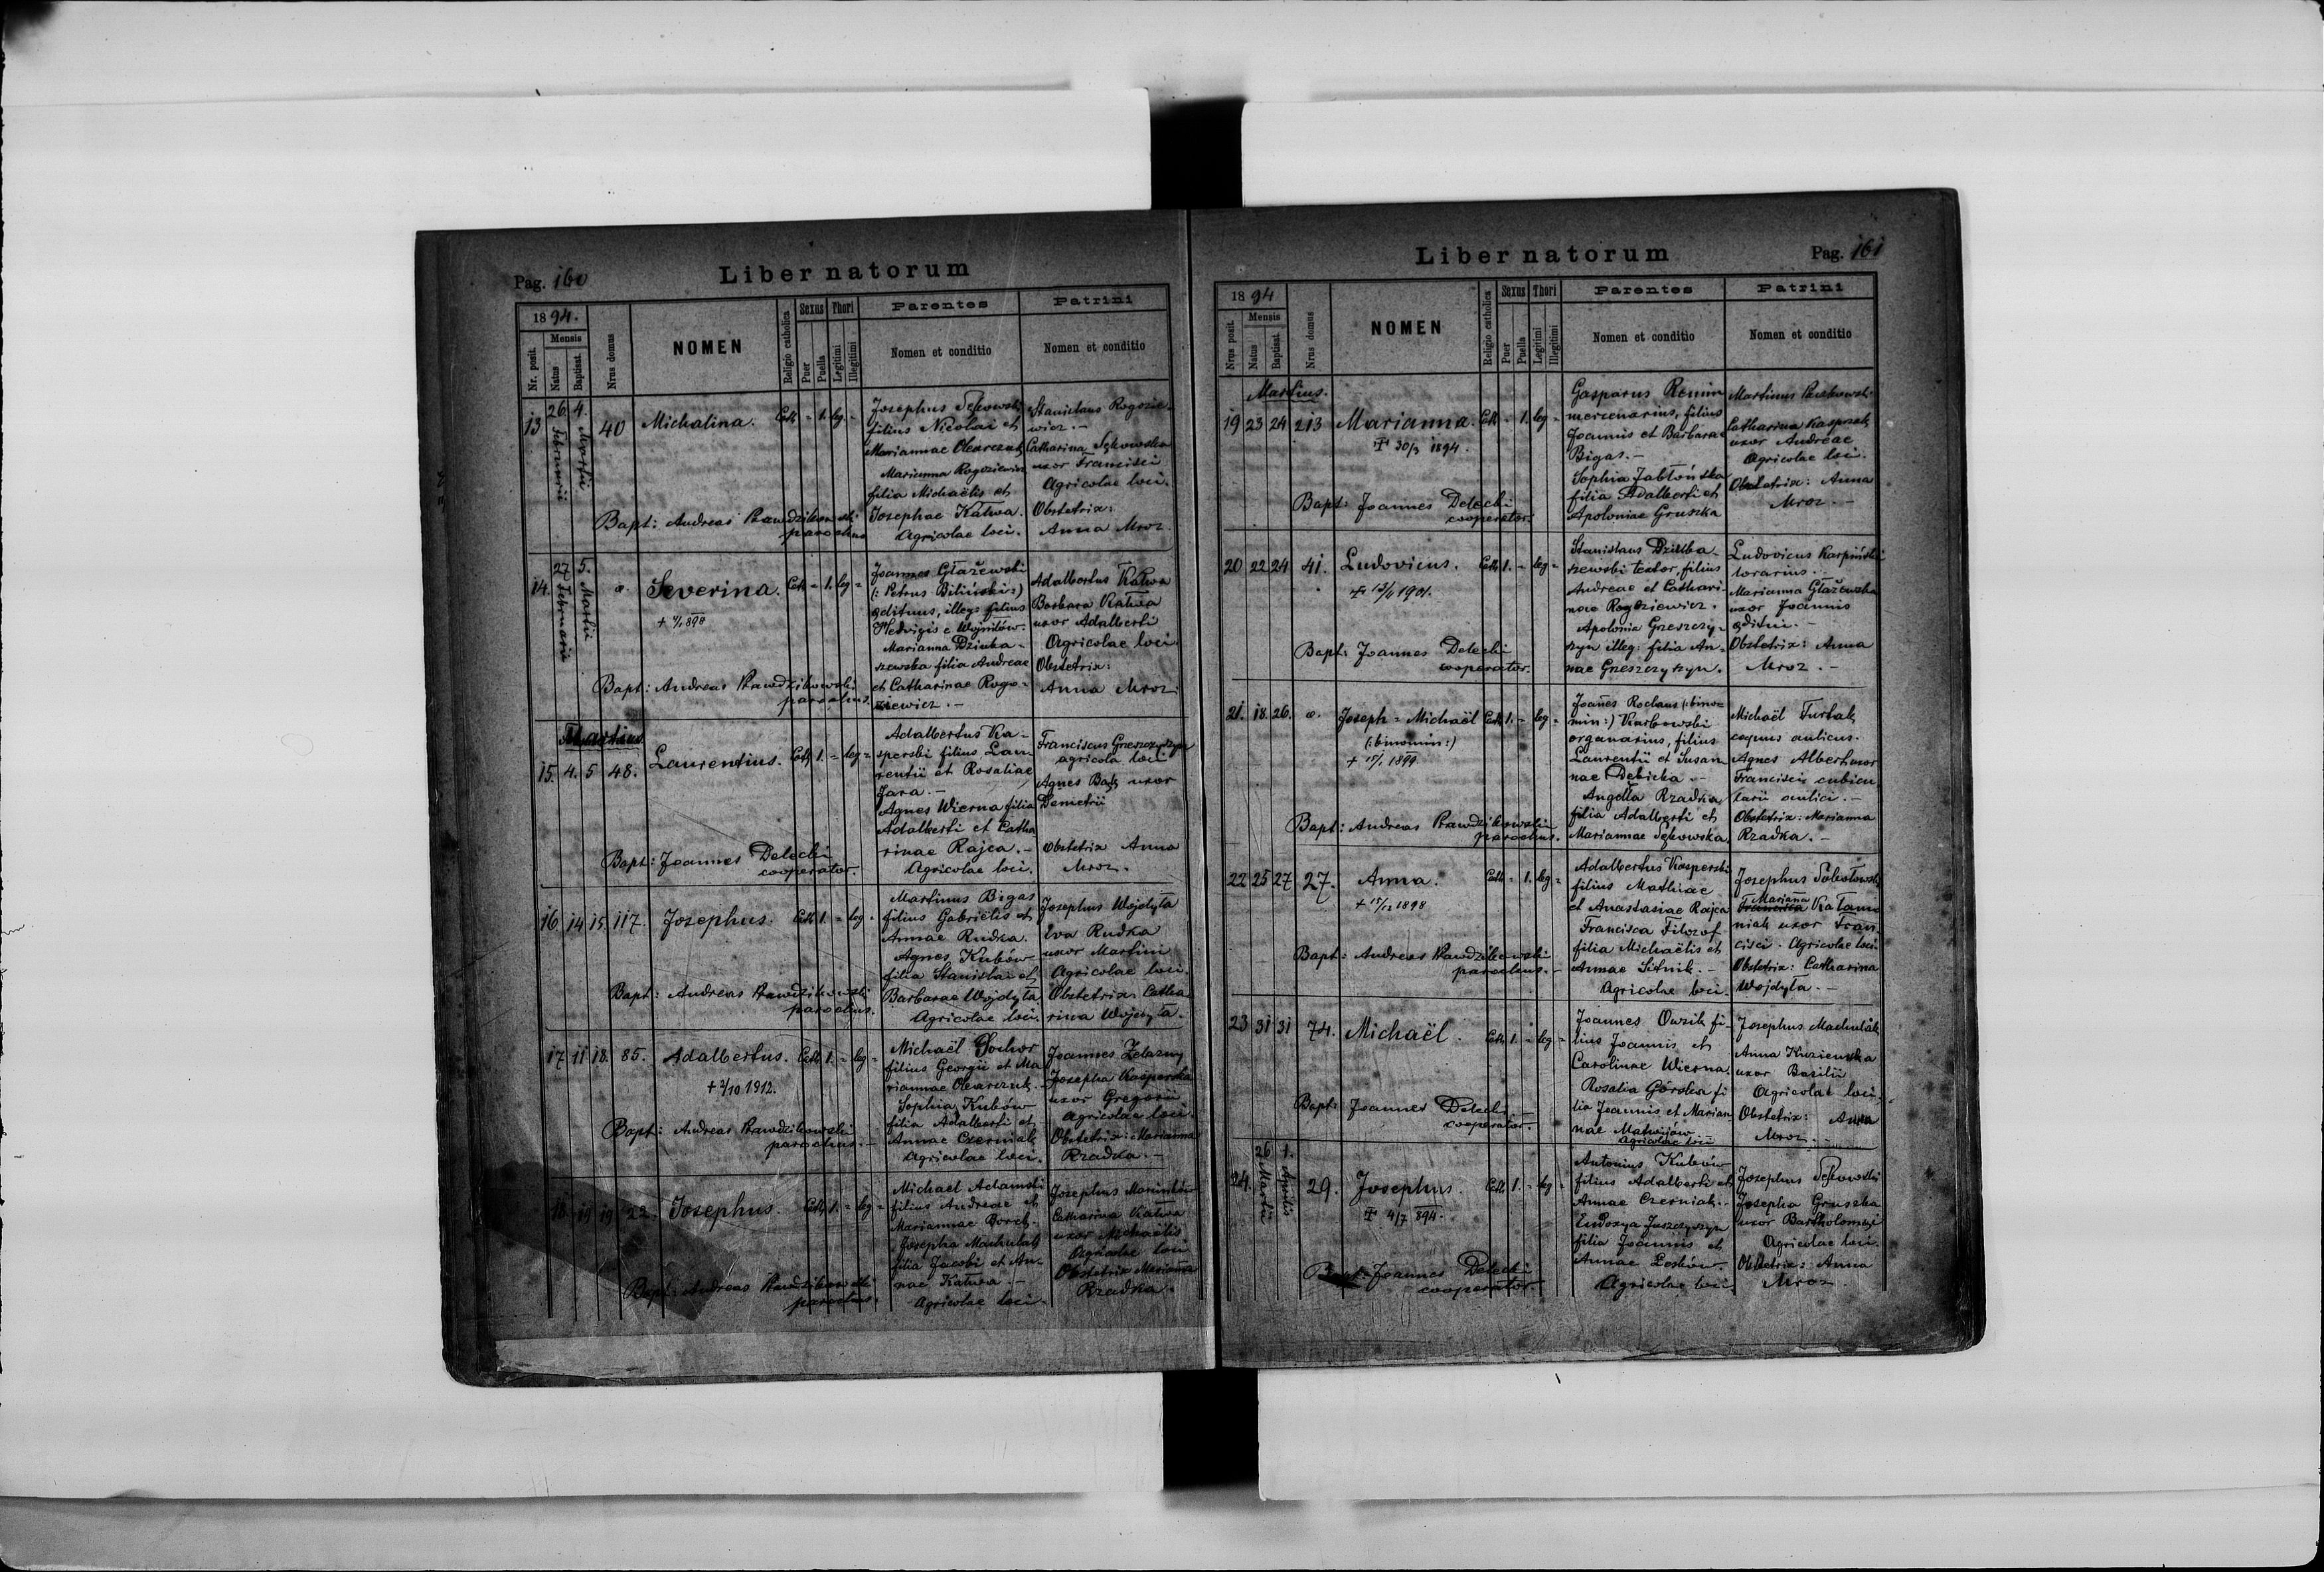 Pag. 160
Liber natorum
1894.
Mensis
Nr. posit.
Natus
Baptisat.
Nrus domus
NOMEN
Religio catholica
Sexus
Puer
Puella
Thori
Legitimi
Illegitimi
Parentes
Nomen et conditio
Patrini
Nomen et conditio
13
26. Februarii
4. Martii
40
Michalina.
Cath - 1. leg. -
Josephus Sękowski
filius Nicolai et
Mariannae Olearczuk
Marianna Rogoziewicz
filia Michaëlis et
Josephae Katwa.
Agricolae loci.
Stanislaus Rogozie-
wicz. -
Catharina Sękowska
uxor Francisci
Agricolae loci.
Obstetrix:
Anna Mroz.
Bapt: Andreas Prawdzikowski
parochus
14.
27 Februarii
5. Martii
o.
Severina.
Cath - 1. leg -
Joannes Głażewski
(: Petrus Biliński:)
aedituus, illeg: filius
Hedvigis e Wojniłów.
Marianna Dziuba-
szewska filia Andreae
et Catharinae Rogo-
ziewicz. -
Adalbertus Katwa
Barbara Katwa
uxor Adalberti
Agricolae loci
Obstetrix:
Anna Mroz.
Bapt: Andreas Prawdzikowski
parochus.
Martius
15. 4. 5 48.
Laurentius.
Cath 1. - leg -
Adalbertus Ka-
sperski filius Lau-
rentii et Rosaliae
Jara. -
Agnes Wierna filia
Adalberti et Catha
rinae Rajca. -
Agricolae loci.
Franciscus Greszczyszyn
agricola loci
Agnes Bąk uxor
Demetrii
Obstetrix Anna
Mroz.
Bapt: Joannes Delecki
cooperator.
16. 14 15. 117.
Josephus.
Cath 1. - leg -
Martinus Bigas
filius Gabrielis et
Annae Rudka.
Agnes Kubów
filia Stanislai et
Barbarae Wojdyła
Agricolae loci.
Josephus Wojdyła
Eva Rudka
uxor Martini
Agricolae loci.
Obstetrix: Catha
rina Wojdyła.
Bapt: Andreas Prawdzikowski
parochus.
17. 11 18. 85.
Adalbertus.
+ 2/10 1912.
Cath 1. - leg -
Michaël Sochor
filius Georgii et Ma
riannae Olearczuk. -
Sophia Kubów
filia Adalberti et
Annae Czerniak
Agricolae loci.
Joannes Żelazny
Josepha Kasperska
uxor Gregorii
Agricolae loci.
Obstetrix: Marianna
Rzadka. -
Bapt: Andreas Prawdzikowski
parochus. -
18 19 19 22.
Josephus.
Cath 1. - leg -
Michael Adamski
filius Andreae et
Mariannae Borek.
Josepha Machulak
filia Jacobi et An-
nae Katwa. -
Agricolae loci.
Josephus
Catharina Katwa
uxor Michaelis
Agricolae loci
Obstetrix Marianna
Rzadka.
Bapt: Andreas Prawdzikowski
parochus.
Liber natorum
Pag. 161
1894
Mensis
Nrus posit.
Natus
Baptisat.
Nrus domus
NOMEN
Religio catholica
Sexus
Puer
Puella
Thori
Legitimi
Illegitimi
Parentes
Nomen et conditio
Patrini
Nomen et conditio
Martius.
19 23 24 213
Marianna.
+ 30/3 1894.
Cath - 1. leg -
Gasparus Remin
mercenarius, filius
Joannis et Barbarae
Bigas. -
Sophia Jabłońska
filia Adalberti et
Apoloniae Gruszka
Martinus
Catharina Kasprzak
uxor Andreae
Agricolae loci.
Obstetrix: Anna
Mroz. -
Bapt: Joannes Delecki
cooperator.
20 22 24 41.
Ludovicus.
+ 13/6 1901.
Cath 1. - leg -
Stanislaus Dziuba-
szewski textor, filius
Andreae et Cathari-
nae Rogoziewicz.
Apolonia Greszczy-
szyn illeg: filia An-
nae Greszczyszyn.
Ludovicus Karpiński
lorarius. -
Marianna Głażewska
uxor Joannis
aeditui. -
Obstetrix: Anna
Mroz. -
Bapt: Joannes Delecki
cooperator.
21. 18. 26. o.
Joseph = Michaël
(: binomin:)
Cath 1. - leg -
Joañes Rochus (:bino=
min:) Karbowski
organarius, filius
Laurentii et Susan
nae Dębicka. -
Angela Rzadka
filia Adalberti et
Mariannae Sękowska.
Michaël Turtak
coquus aulicus.
Agnes Albert uxor
Francisci cubicu
larii aulici. -
Obstetrix: Marianna
Rzadka. -
Bapt: Andreas Prawdzikowski
parochus.
22 25 27 27.
Anna.
+ 15/12 1898
Cath - 1. leg -
Adalbertus Kasperski
filius Mathiae
et Anastasiae Rajca
Francisca Filozof
filia Michaëlis et
Annae Sitnik. -
Agricolae loci.
Josephus Sobotowski
Marianna
Francisca Kałamu
niak uxor Fran-
cisci. Agricolae loci.
Obstetrix: Catharina
Wojdyła. -
Bapt: Andreas Prawdzikowski
parochus. -
23 31 31 74.
Michaël.
Cath 1. - leg -
Joannes Owzik fi-
lius Joannis et
Carolinae Wierna.
Rosalia Górska fi
lia Joannis et Marian
nae Matwijów
agricolae loci
Josephus Machulak
Anna Kuziemska
uxor Basilii
Agricolae loci.
Obstetrix: Anna
Mroz. -
Bapt: Joannes Delecki
cooperator.
24.
26 Martii
1. Aprilis
29.
Josephus.
+ 4/7 894.
Cath 1. - leg -
Antonius Kubów
filius Adalberti et
Annae Czerniak. -
Eudoxya Juszczyszyn
filia Joannis et
Annae Leskiów.
Agricolae loci
Josephus Sękowski
Josepha Gruszka
uxor Bartholomaei
Agricolae loci.
Obstetrix: Anna
Mroz.
Joannes Delecki
cooperator.